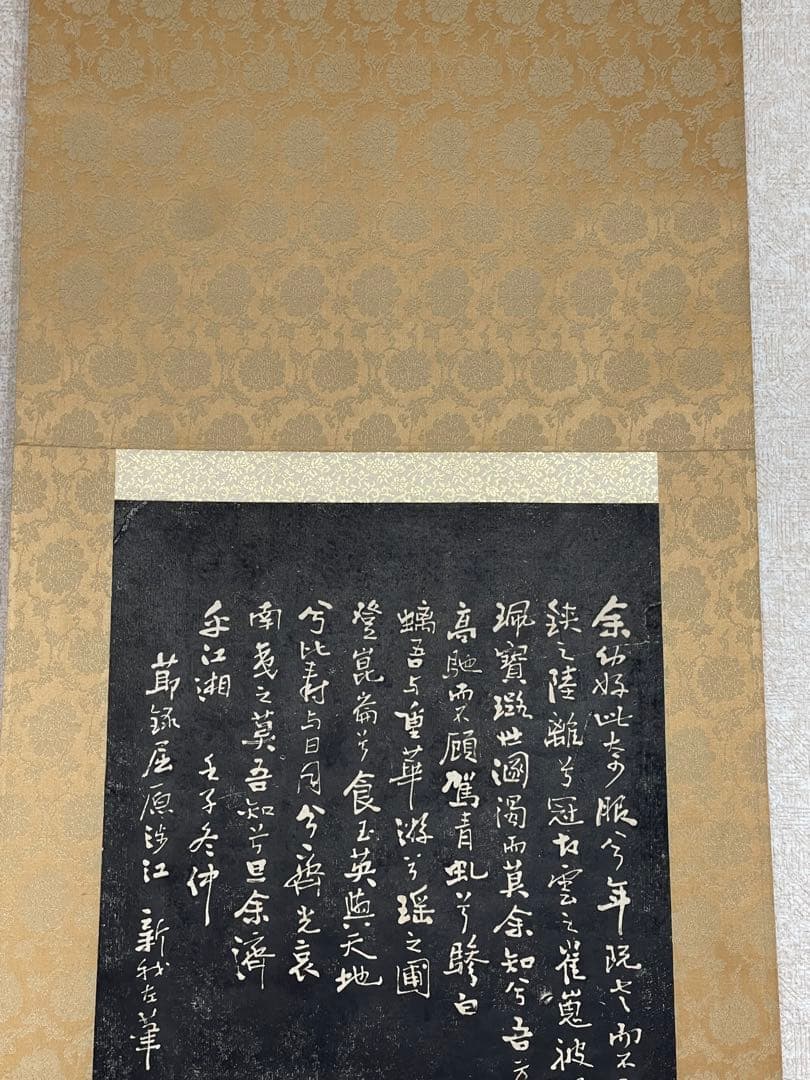 余幼好此奇服兮年既老而不
鋏之陸離兮冠切雲之崔嵬被
珮寶璐世溷濁而莫余知兮吾方
高馳而不顧駕青虬兮驂白
螭吾与重華游兮瑶之圃
登崑崙兮食玉英與天地
兮比寿与日月兮齊光哀
南夷之莫吾知兮旦余濟
乎江湘 壬子冬仲
節録屈原涉江 新我左筆